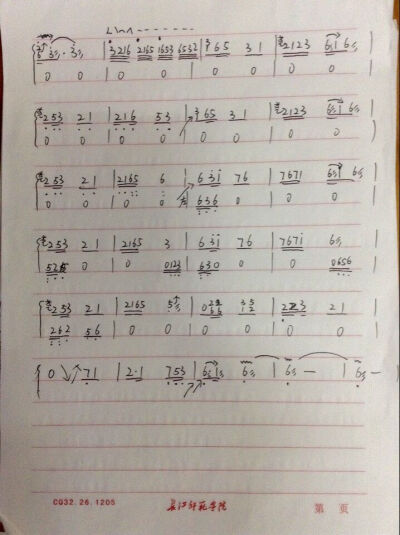 3216 2165 1653 6532 | 3 65 3 1 | 2123 6 1 6
0 0 | 0 0 | 0 0 | 0 0
253 21 | 216 53 | 3 65 3 1 | 2123 6 1 6
0 0 | 0 0 | 0 0 | 0 0
253 21 | 2165 6 | 63i 76 | 767i 6 1 6
0 0 | 0 0 | 636 0 | 0 0
253 21 | 2165 3 | 63i 76 | 767i 6
525 0 | 0 0123 | 630 0 | 0 0656
253 21 | 2165 5 | 0 | 223 21
262 56 | 0 0 | 0 0 | 0 0
0 71 | 2·1 753 | 6 1 6 | 6 — | 6 —
CG32.26.1205 长江师范学院 第 页